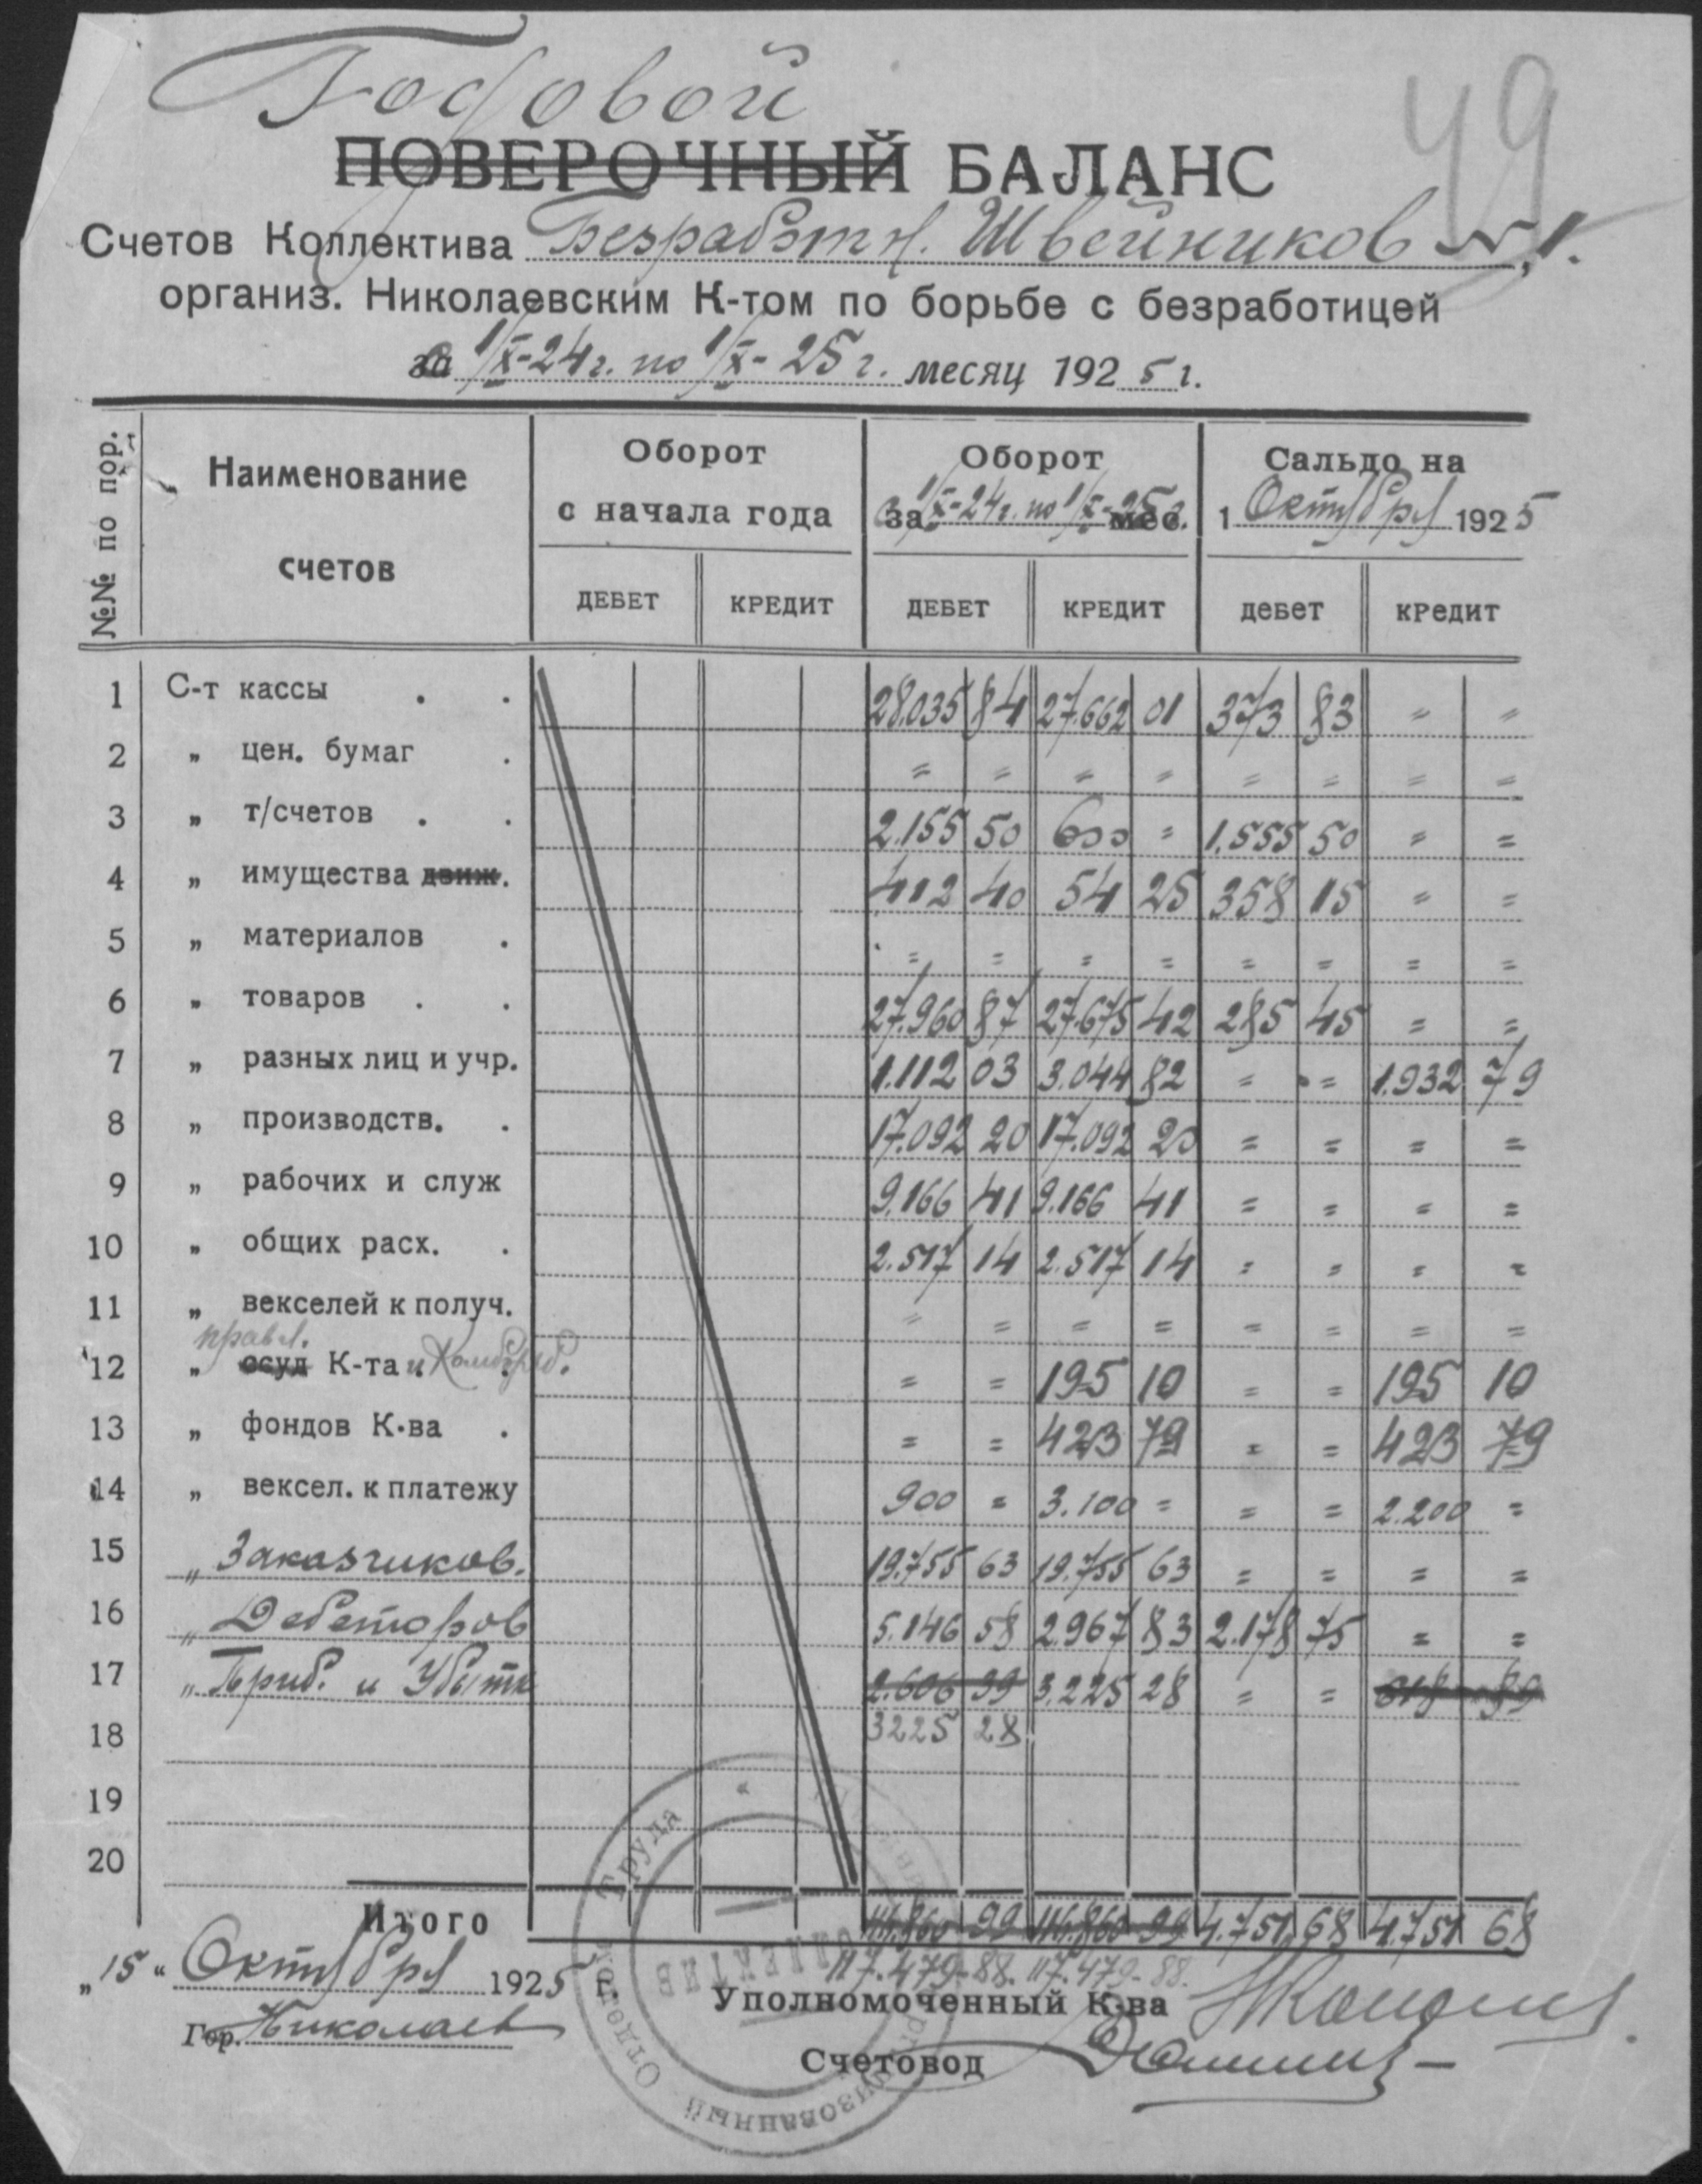 Годовой
49
ПОВЕРОЧНЫЙ БАЛАНС
Счетов Коллектива Безработн. Швейников №1.
организ. Николаевским К-том по борьбе с безработицей
за 1/X-24г. по 1/X-25г. месяц 1925 г.
№№ по пор.
Наименование счетов
Оборот с начала года
Оборот за 1/X-24г. по 1/X-25г. мес.
Сальдо на 1 Октября 1925
ДЕБЕТ КРЕДИТ ДЕБЕТ КРЕДИТ дебет кредит
1 С-т кассы . . 28.035 84 27.662 01 373 83 = =
2 „ цен. бумаг . = = = = = = = =
3 „ т/счетов . . 2.155 50 600 = 1.555 50 = =
4 „ имущества движ. 412 40 54 25 358 15 = =
5 „ материалов . = = = = = = = =
6 „ товаров . . 27.960 87 27.675 42 285 45 = =
7 „ разных лиц и учр. 1.112 03 3.044 82 = = 1.932 79
8 „ производств. . 17.092 20 17.092 20 = = = =
9 „ рабочих и служ 9.166 41 9.166 41 = = = =
10 „ общих расх. . 2.517 14 2.517 14 = = = =
11 „ векселей к получ. = = = = = = = =
правл.
12 „ ссуд К-та и Комборб. = = 195 10 = = 195 10
13 „ фондов К-ва . = = 423 79 = = 423 79
14 „ вексел. к платежу 900 = 3.100 = = = 2.200 =
15 „ Заказчиков. 19.755 63 19.755 63 = = = =
16 „ Дебеторов 5.146 58 2.967 83 2.178 75 = =
17 „ Приб. и Убытк 2.606 39 3.225 28 = = 618 89
18 3225 28
19
20
Итого 116.860 99 116.860 99 4.751 68 4.751 68
117.479-88. 117.479-88.
„15“ Октября 1925 г.
Уполномоченный К-ва
Гор. Николаев
Счетовод
Труда
Отдел